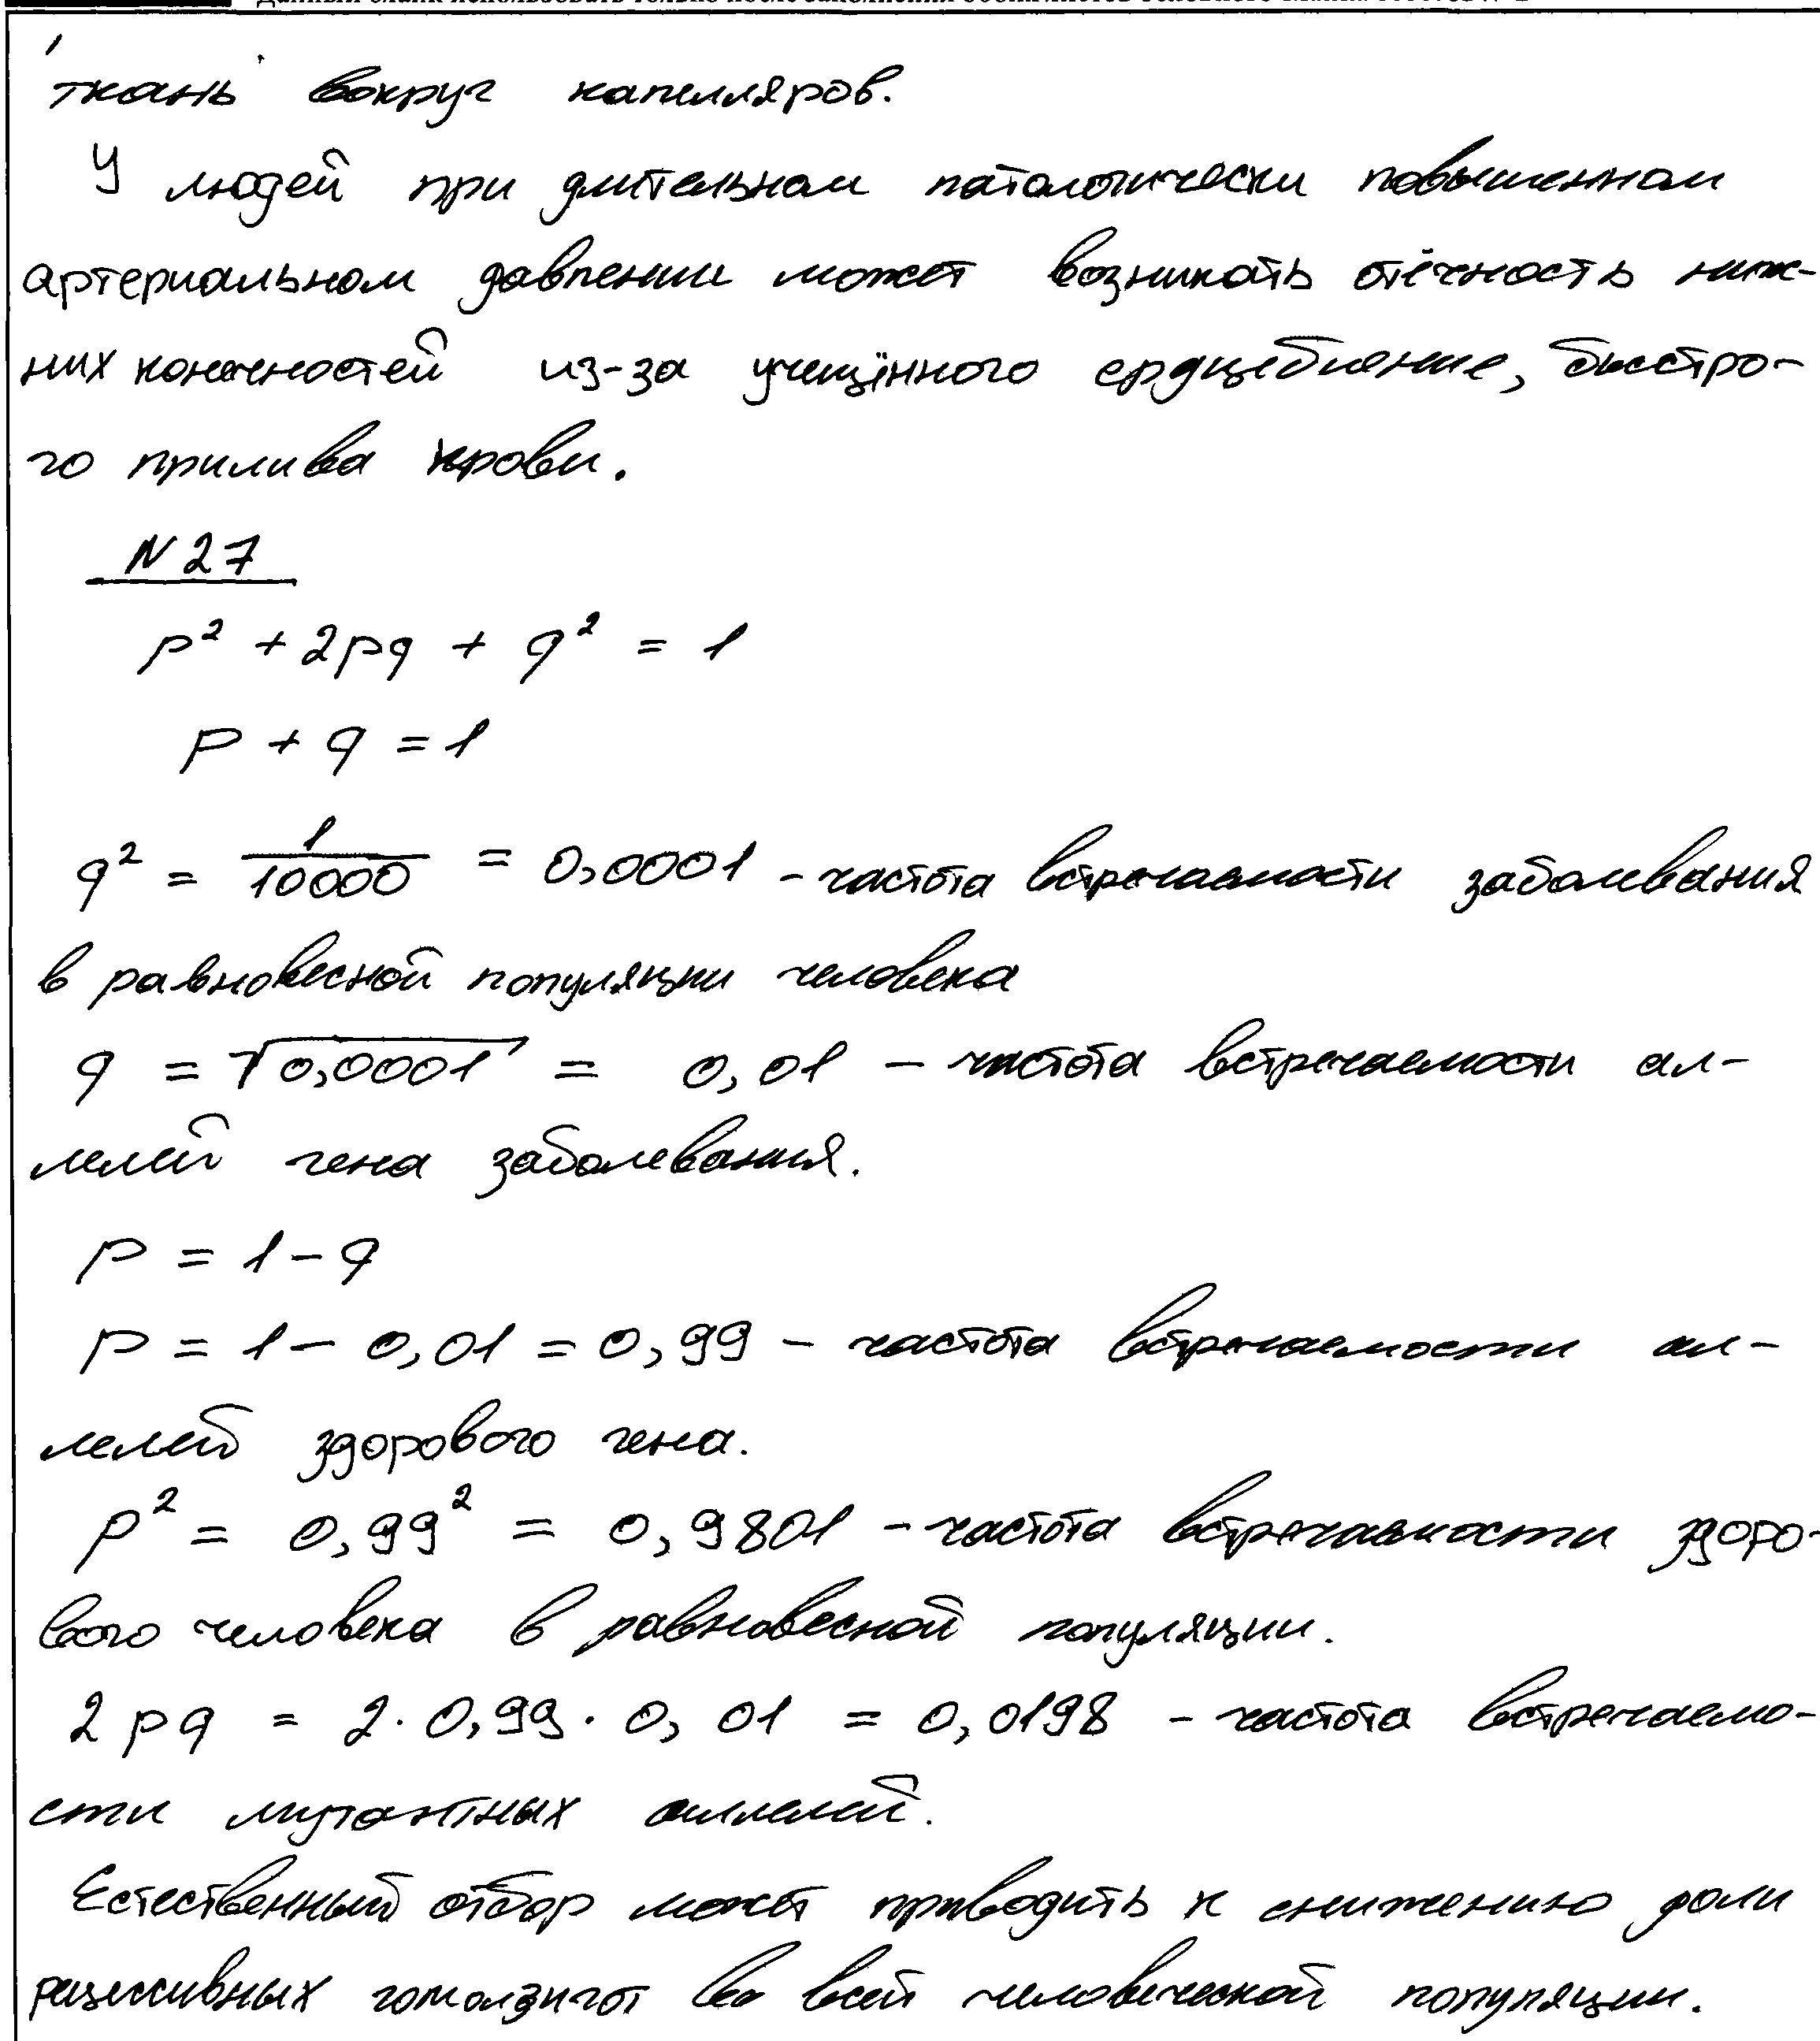 ткань вокруг капелляров.
У людей при длительном патологически повышенном
артериальном давлении может возникать отёчность ниж-
них конечностей из-за учещённого срдцебиение, быстро-
го прилива крови.
N 27
p² + 2pq + q² = 1
p + q = 1
q² = 1/10000 = 0,0001 - частота встречаемости заболевания
в равновесной популяции человека
q = √0,0001 = 0,01 - частота встречаемости ал-
лелей гена заболевания.
p = 1 - q
p = 1 - 0,01 = 0,99 - частота встречаемости ал-
лелей здорового гена.
p² = 0,99² = 0,9801 - частота встречаемости здоро-
вого человека в равновесной популяции.
2pq = 2 · 0,99 · 0,01 = 0,0198 - частота встречаемо-
сти мутантных аллелей.
Естественный отбор может приводить к снижению доли
рецессивных гомозигот во всей человеческой популяции.